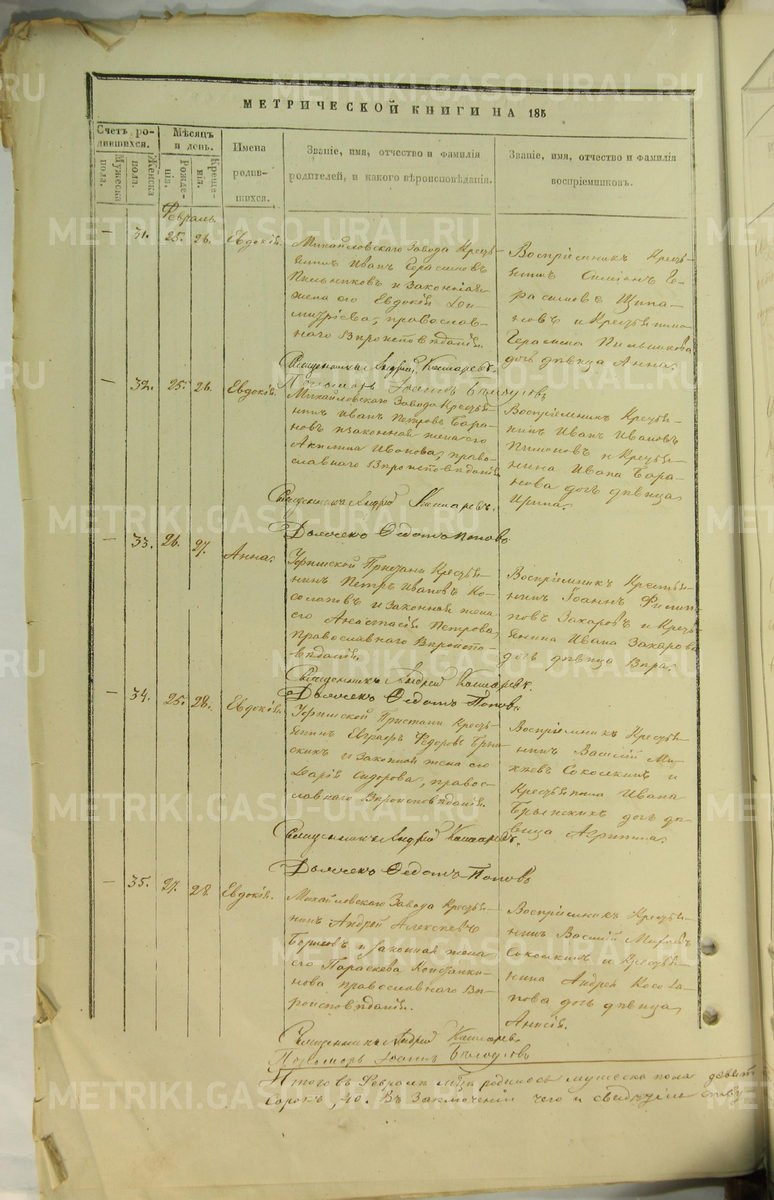 МЕТРИЧЕСКОЙ КНИГИ НА 185
Счетъ родившихся.
Мужеска пола.
Женска пола.
Мѣсяцъ и день.
Рожденія.
Крещенія.
Имена родившихся.
Званіе, имя, отчество и фамилія
родителей, и какого вѣроисповѣданія.
Званіе, имя, отчество и фамилія
воспріемниковъ.
Февраль
— 31. 25. 26. Евдокія.
Михайловскаго Завода Крестьянинъ
Иванъ Герасимовъ
Пильниковъ и Законная
жена его Евдокія
Димитріева, православнаго
Вѣроисповѣданія.
Воспріемникъ Крестьянинъ
Симіонъ Герасимовъ
и Крестьянина
Герасима Пильникова
дочь дѣвица Анна.
Священникъ Андрей Кашаревъ.
Пономарь Іоаннъ
— 32. 25. 26. Евдокія.
Михайловскаго Завода Крестьянинъ
Иванъ Петровъ Барановъ
и законная жена его
Акилина Иванова, православнаго
Вѣроисповѣданія
Воспріемникъ Крестьянинъ
Иванъ Ивановъ
Пимоновъ и Крестьянина
Ивана Баранова
дочь дѣвица
Ирина.
Священникъ Андрей Кашаревъ.
Дьячекъ Ѳедотъ Поповъ
— 33. 26. 27. Анна.
Уфимской Пристани Крестьянинъ
Петръ Ивановъ Косолаповъ
и законная жена
его Анастасія Петрова,
Православнаго Вѣроисповѣданія.
Воспріемникъ Крестьянинъ
Іоаннъ Филиповъ
Захаровъ и Крестьянина
Ивана Захарова
дочь дѣвица Вѣра.
Священникъ Андрей Кашаревъ.
Дьячекъ Ѳедотъ Поповъ
— 34. 25. 28. Евдокія.
Уфимской Пристани Крестьянинъ
Евграфъ Федоровъ
и законная жена его
Дарія Сидорова, православнаго
Вѣроисповѣданія.
Воспріемникъ Крестьянинъ
Василій
и
Крестьянина Ивана
дочь дѣвица
Агрипина.
Священникъ Андрей Кашаревъ.
Дьячекъ Ѳедотъ Поповъ
— 35. 27. 28. Евдокія.
Михайловскаго Завода Крестьянинъ
Андрей Алексѣевъ
и законная жена
его Параскева
православнаго Вѣроисповѣданія.
Воспріемникъ Крестьянинъ
Василій
и Крестьянина
Андрея Косолапова
дочь дѣвица
Священникъ Андрей Кашаревъ.
Пономарь Іоаннъ
Итого въ Февралѣ родилось мужеска пола
сорокъ, 40. Въ Заключеніи чего и
METRIKI.GASO-URAL.RU